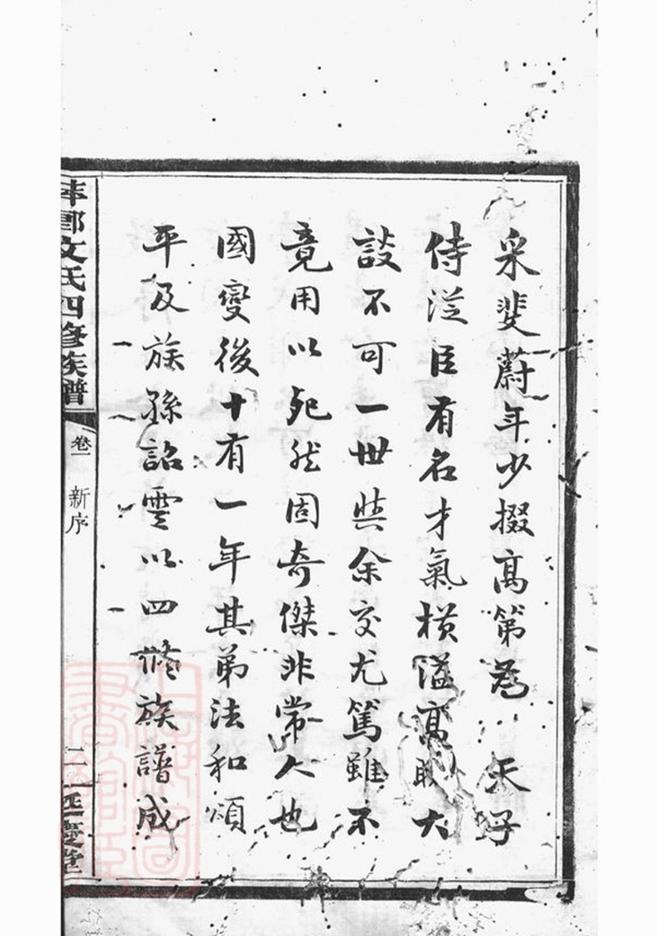 采斐蔚年少掇高第為天子
侍従臣有名才氣橫溢高睨大
談不可一世與余交尤篤雖不
竟用以死然固奇傑非常人也
國變後十有一年其弟法和頌
平及族孫詔雲以四脩族譜成
萍鄉文氏四修族譜
卷一
新序
二
慶堂